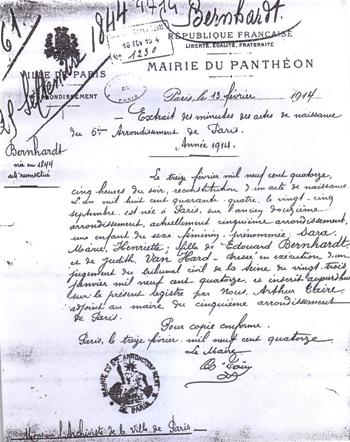 61.
25 Septembre 1844
4474
Bernhardt.
16 FEV 1914
1230
RÉPUBLIQUE FRANÇAISE
LIBERTÉ, EGALITÉ, FRATERNITÉ
VILLE DE PARIS
MAIRIE DU PANTHÉON
ARRONDISSEMENT
Paris, le 13 février 1914
Extrait des minutes des actes de naissance
du 5e Arrondissement de Paris.
Année 1914.
Bernhardt
née en 1844
acte reconstitué
Le treize février mil neuf cent quatorze,
cinq heures du soir, reconstitution d'un acte de naissance.
L'an mil huit cent quarante-quatre, le vingt-cinq
septembre est née à Paris, sur l'ancien douzième
arrondissement, actuellement cinquième arrondissement,
une enfant du sexe féminin, prénommée Sara
Marie Henriette, fille de Edouard Bernhardt
et de Judith Van Hard - dressé en exécution d'un
jugement du tribunal civil de la Seine du vingt trois
janvier mil neuf cent quatorze, et inscrit aujourd'hui
sur le présent registre par Nous, Arthur Claire
adjoint au maire du cinquième arrondissement
de Paris.
Pour copie conforme.
Paris, le treize février mil neuf cent quatorze
Le Maire
MAIRIE DU 5E ARRONDISSEMENT
DE PARIS
Monsieur l'Archiviste de la Ville de Paris